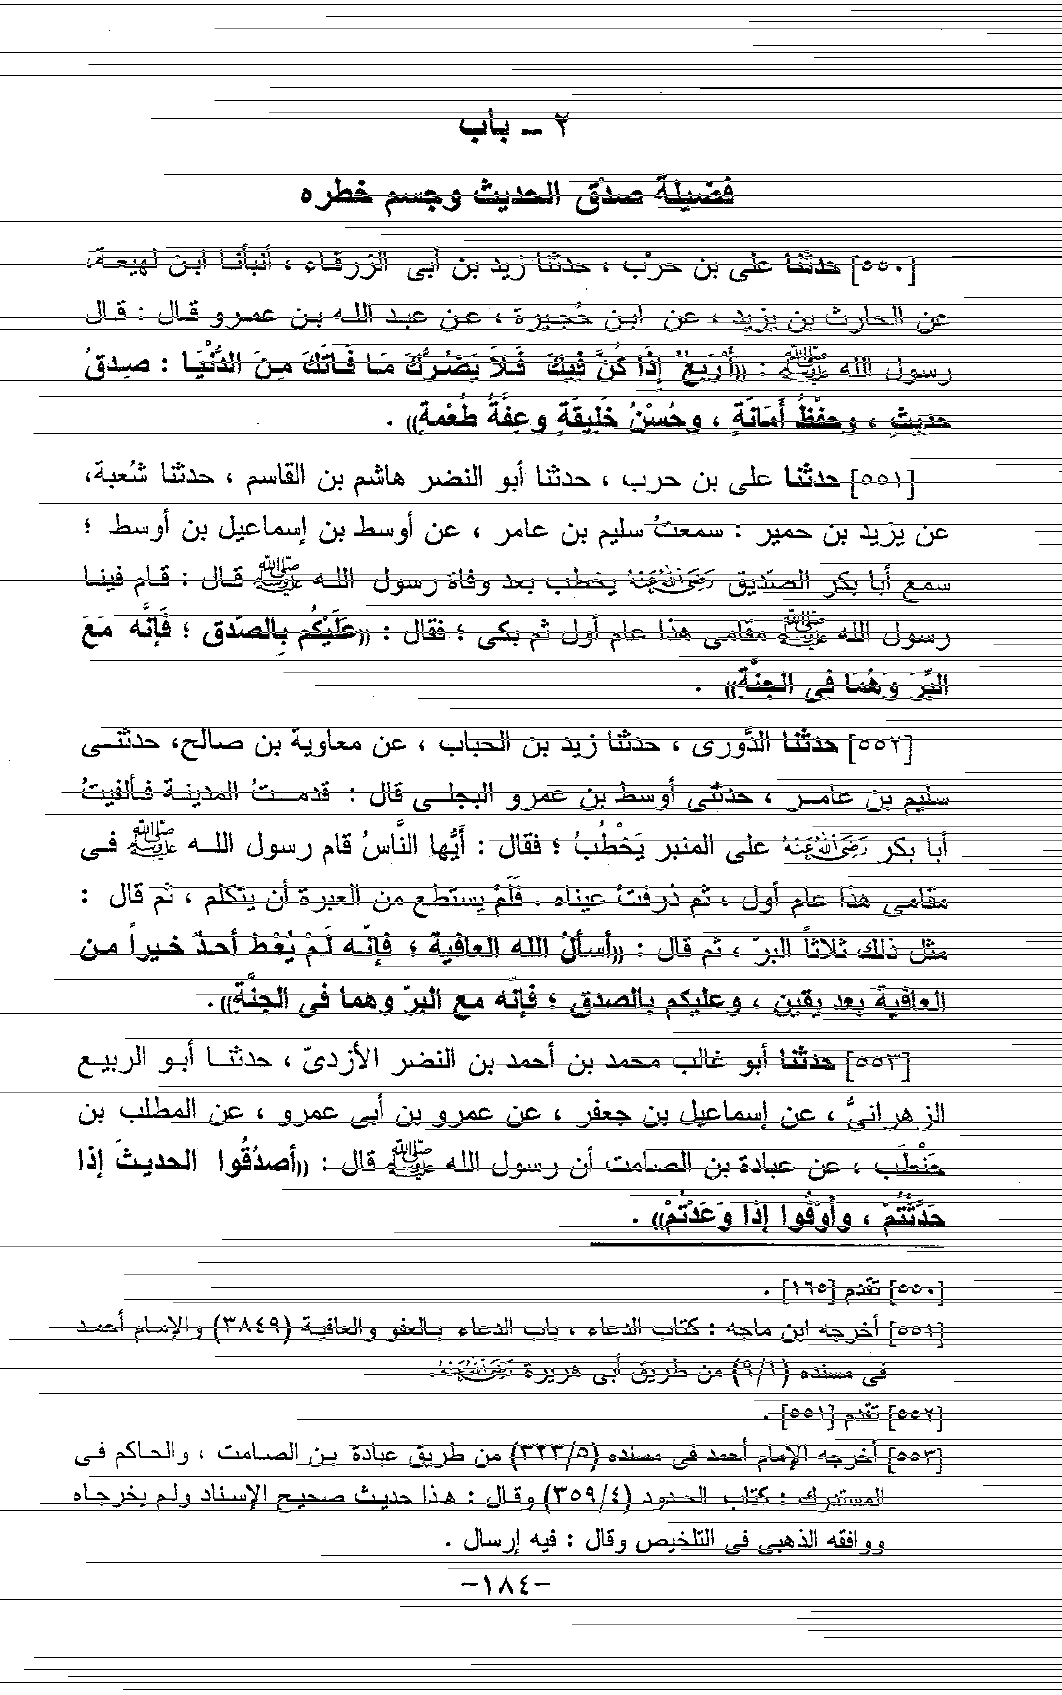 ٢ ــ باب
فضيلة صدق الحديث وجسم خطره
[٥٥٠] حدثنا على بن حرْب ، حدثنا زيد بن أبى الزرقاء ، أنبأنا ابن لهيعة،
عن الحارث بن يزيد ، عن ابن حُجيرة ، عن عبد الله بن عمرو قال : قال
رسول الله ﷺ : «أَرْبَعٌ إِذَا كُنَّ فِيكَ فَلاَ يَضُرُّكَ مَا فَاتَكَ مِنَ الدُّنْيَا : صِدقُ
حديثٍ ، وحِفْظُ أَمَانَةٍ ، وحُسْنُ خَلِيقَةٍ وعِفَّةُ طُعْمةٍ» .
[٥٥١] حدثنا على بن حرب ، حدثنا أبو النضر هاشم بن القاسم ، حدثنا شُعبة،
عن يزيد بن حمير : سمعتُ سليم بن عامر ، عن أوسط بن إسماعيل بن أوسط ؛
سمع أبا بكر الصّديق رَضِيَ اللهُ عَنْهُ يخطب بعد وفاة رسول الله ﷺ قال : قام فينا
رسول الله ﷺ مقامى هذا عام أول ثم بكى ؛ فقال : «عَلَيْكُم بِالصّدق ؛ فَإنَّه مَعَ
البِّر وَهُمَا فى الجنَّة» .
[٥٥٢] حدثنا الدَّورى ، حدثنا زيد بن الحباب ، عن معاوية بن صالح، حدثنى
سليم بن عامر ، حدثنى أوسط بن عمرو البجلى قال : قدمتُ المدينة فألفيتُ
أبا بكر رَضِيَ اللهُ عَنْهُ على المنبر يَخْطُبُ ؛ فقال : أَيُّها النَّاسُ قام رسول الله ﷺ فى
مقامى هذا عام أول ، ثم ذرفتْ عيناه . فَلَمْ يستطع من العبرة أن يتكلم ، ثم قال :
مثل ذلك ثلاثاً البرّ ، ثم قال : «أسألُ الله العافية ؛ فإنّه لَمْ يُعْط أحدٌ خيراً من
العافية بعد يقين ، وعليكم بالصدق ؛ فإنّه مع البرّ وهما فى الجنَّة».
[٥٥٣] حدثنا أبو غالب محمد بن أحمد بن النضر الأزدىّ ، حدثنا أبو الربيع
الزهرانىُّ ، عن إسماعيل بن جعفر ، عن عمرو بن أبى عمرو ، عن المطلب بن
حَنْطَب ، عن عبادة بن الصامت أن رسول الله ﷺ قال : «أصدُقُوا الحديثَ إذا
حَدَّثْتُمْ ، وأَوْفُوا إذَا وَعَدْتُمْ» .
[٥٥٠] تقدم [١٦٥] .
[٥٥١] أخرجه ابن ماجه : كتاب الدعاء ، باب الدعاء بالعفو والعافية (٣٨٤٩) والإمام أحمد
فى مسنده (٩/١) من طريق أبى هريرة رَضِيَ اللهُ عَنْهُ.
[٥٥٢] تقدم [٥٥١] .
[٥٥٣] أخرجه الإمام أحمد فى مسنده (٣٢٣/٥) من طريق عبادة بن الصامت ، والحاكم فى
المستدرك : كتاب الحدود (٣٥٩/٤) وقال : هذا حديث صحيح الإسناد ولم يخرجاه
ووافقه الذهبى فى التلخيص وقال : فيه إرسال .
-١٨٤-